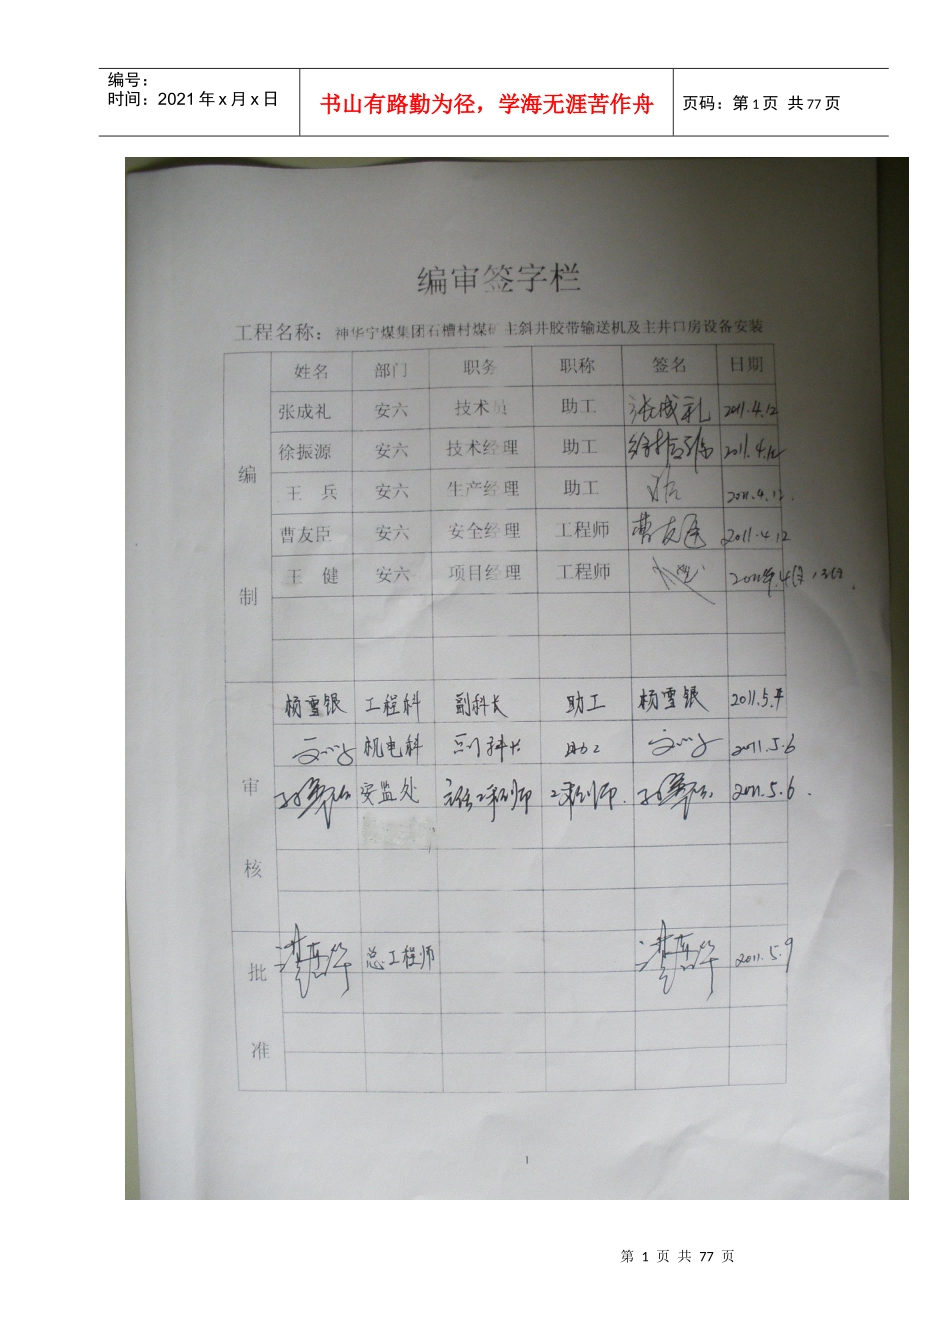 编号：
时间：2021年x月x日
书山有路勤为径，学海无涯苦作舟
页码：第1页 共77页
编审签字栏
工程名称：神华宁煤集团石槽村煤矿主斜井胶带输送机及主井口房设备安装
姓名 部门 职务 职称 签名 日期
编制
张成礼 安六 技术员 助工 张成礼 2011.4.12
徐振源 安六 技术经理 助工 徐振源 2011.4.12
王 兵 安六 生产经理 助工 2011.4.12.
曹友臣 安六 安全经理 工程师 曹友臣 2011.4.12
王 健 安六 项目经理 工程师
审核
杨雪银 工程科 副科长 助工 杨雪银 2011.5.4
机电科 副科长 助工 2011.5.6
安监处 主任工程师 工程师. 2011.5.6.
批准
总工程师 2011.5.9
1
第 1 页 共 77 页